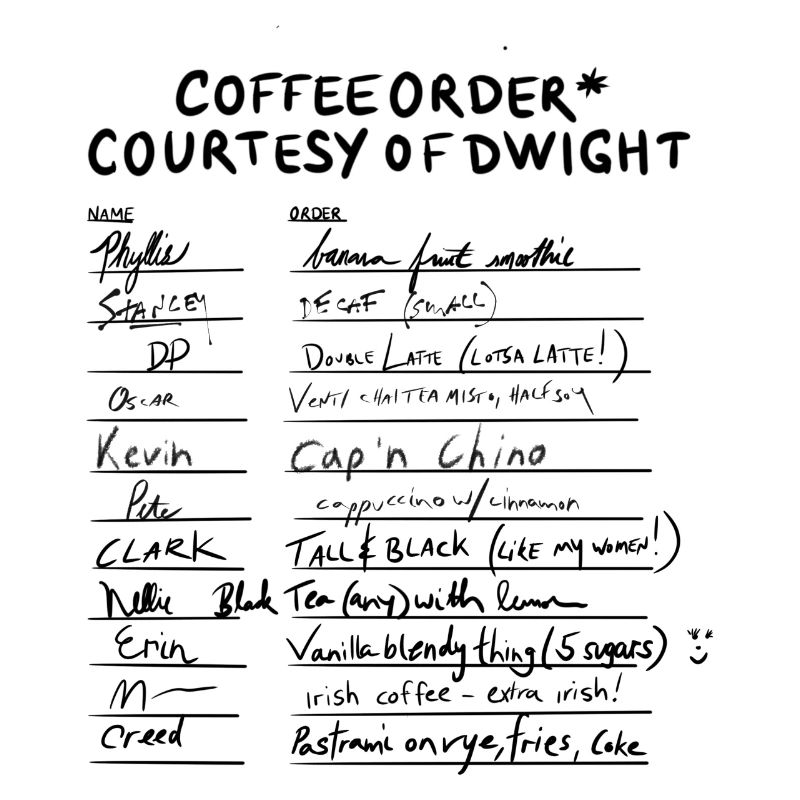 COFFEE ORDER*
COURTESY OF DWIGHT
NAME ORDER
Phyllis banana fruit smoothie
STANLEY DECAF (SMALL)
DP DOUBLE LATTE (LOTSA LATTE!)
OSCAR VENTI CHAI TEA MISTO, HALF SOY
Kevin Cap'n Chino
Pete cappuccino w/ cinnamon
CLARK TALL & BLACK (LIKE MY WOMEN!)
Nellie Black Tea (any) with lemon
Erin Vanilla blendy thing (5 sugars)
M irish coffee - extra irish!
Creed Pastrami on rye, fries, Coke